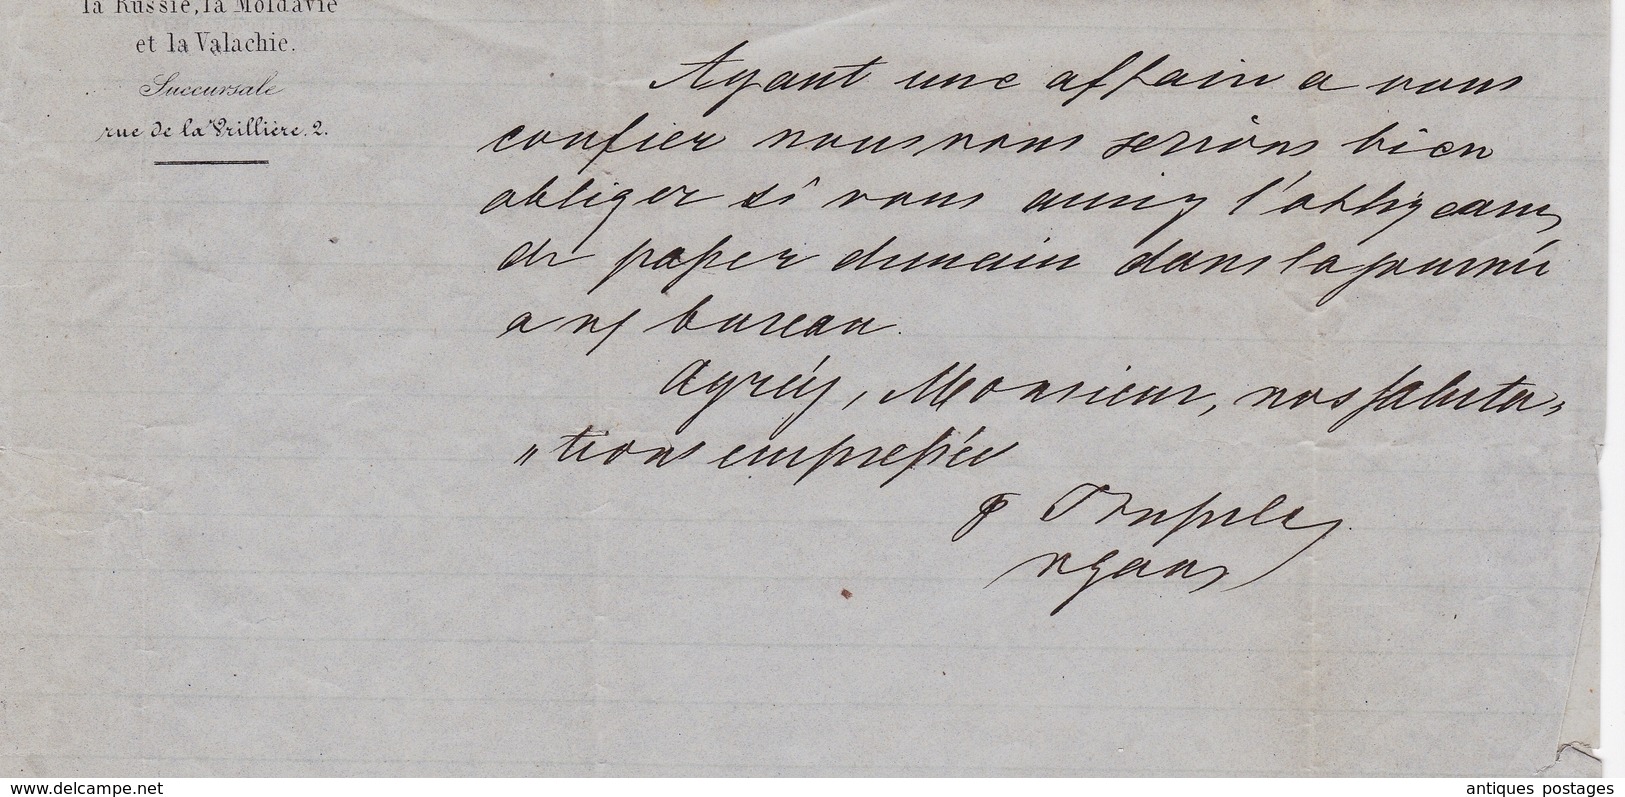 la Russie, la Moldavie
et la Valachie.
Succursale
rue de la Vrillière. 2.
Ayant une affaire a vous
confier nous vous serions bien
obliger si vous auriez l'obligeance
de passer demain dans la journée
a nos bureau.
Agréez, Monsieur, nos saluta-
"tions empressées
www.delcampe.net
antiques postages